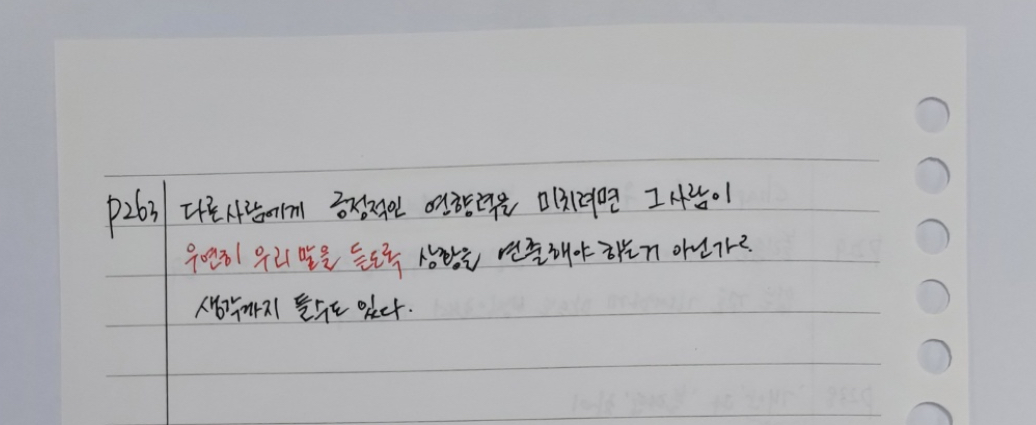 p263 다른사람에게 긍정적인 영향력을 미치려면 그 사람이
우연히 우리 말을 듣도록 상황을 연출해야 하는거 아닌가?
생각까지 들수도 있다.